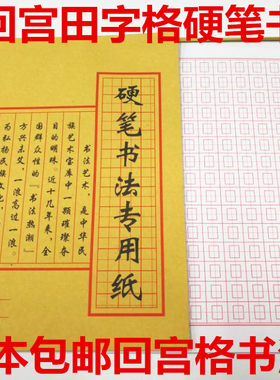 回宫田字格硬笔书
硬笔书法专用纸
书法艺术，是中华民
族艺术宝库中一颗璀璨夺
目的明珠。近十几年来，全
国群众性的『书法热潮』
方兴未艾，一浪高过一浪。
为弘扬民族文化，
本包邮回宫格书法